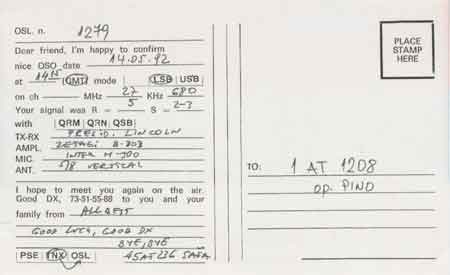 QSL. n. 1279
Dear friend, I'm happy to confirm
nice QSO date 14.05.92
at 1415 GMT mode LSB USB
on ch — MHz 27 KHz 680
Your signal was R = 5 S = 2-3
with QRM QRN QSB
TX-RX PRESID. LINCOLN
AMPL. ZETAGI B-303
MIC. INTEK M-
ANT. 5/8 VERTICAL
I hope to meet you again on the air.
Good DX, 73-51-55-88 to you and your
family from ALL BEST
GOOD LUCK, GOOD DX
BYE, BYE
PSE TNX QSL
PLACE
STAMP
HERE
TO: 1 AT 1208
op. PINO